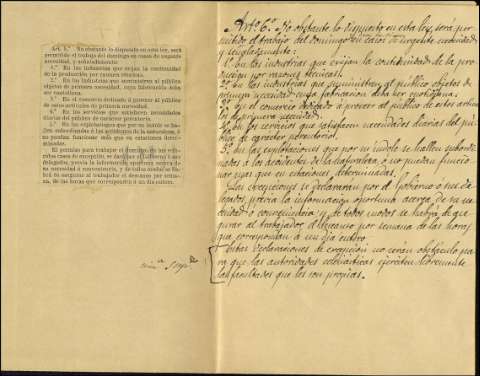 Art. 6.º No obstante lo dispuesto en esta ley, será
permitido el trabajo del domingo en casos de urgente
necesidad, y señaladamente:
1.º En las industrias que exijan la continuidad
de la producción por razones técnicas.
2.º En las industrias que suministren al público
objetos de primera necesidad, cuya fabricación deba
ser cotidiana.
3.º En el comercio dedicado á proveer al público
de estos artículos de primera necesidad.
4.º En los servicios que satisfacen necesidades
diarias del público de carácter perentorio.
5.º En las explotaciones que por su índole se ha-
llen subordinadas á los accidentes de la naturaleza, ó no
puedan funcionar más que en estaciones determi-
nadas.
de la necesidad ó conveniencia, y de todos modos se ha-
brá de asegurar al trabajador el descanso por sema-
na, de las horas que correspondan á un día entero.
Artº 6º No obstante lo dispuesto en esta ley, será per-
mitido el trabajo del domingo en casos de urgente necesidad
y señaladamente:
1º En las industrias que exijan la continuidad de la pro-
ducción por razones técnicas.
2º En las industrias que suministren al público objetos de
primera necesidad cuya fabricación deba ser cotidiana.
3º En el comercio dedicado á proveer al público de estos artícu-
los de primera necesidad.
4º En los servicios que satisfacen necesidades diarias del pú-
blico de carácter perentorio.
5º En las explotaciones que por su índole se hallen subordi-
nadas á los accidentes de la naturaleza, ó no puedan funcio-
nar más que en estaciones determinadas.
Las excepciones se declararán por el Gobierno ó sus de-
legados, previa la información oportuna acerca de su ne-
cesidad ó conveniencia, y de todos modos se habrá de ase-
gurar al trabajador el descanso por semana de las horas
que correspondan á un día entero.
Estas declaraciones de excepción no serán obstáculo pa-
ra que las autoridades eclesiásticas ejerciten libremente
las facultades que les son propias.